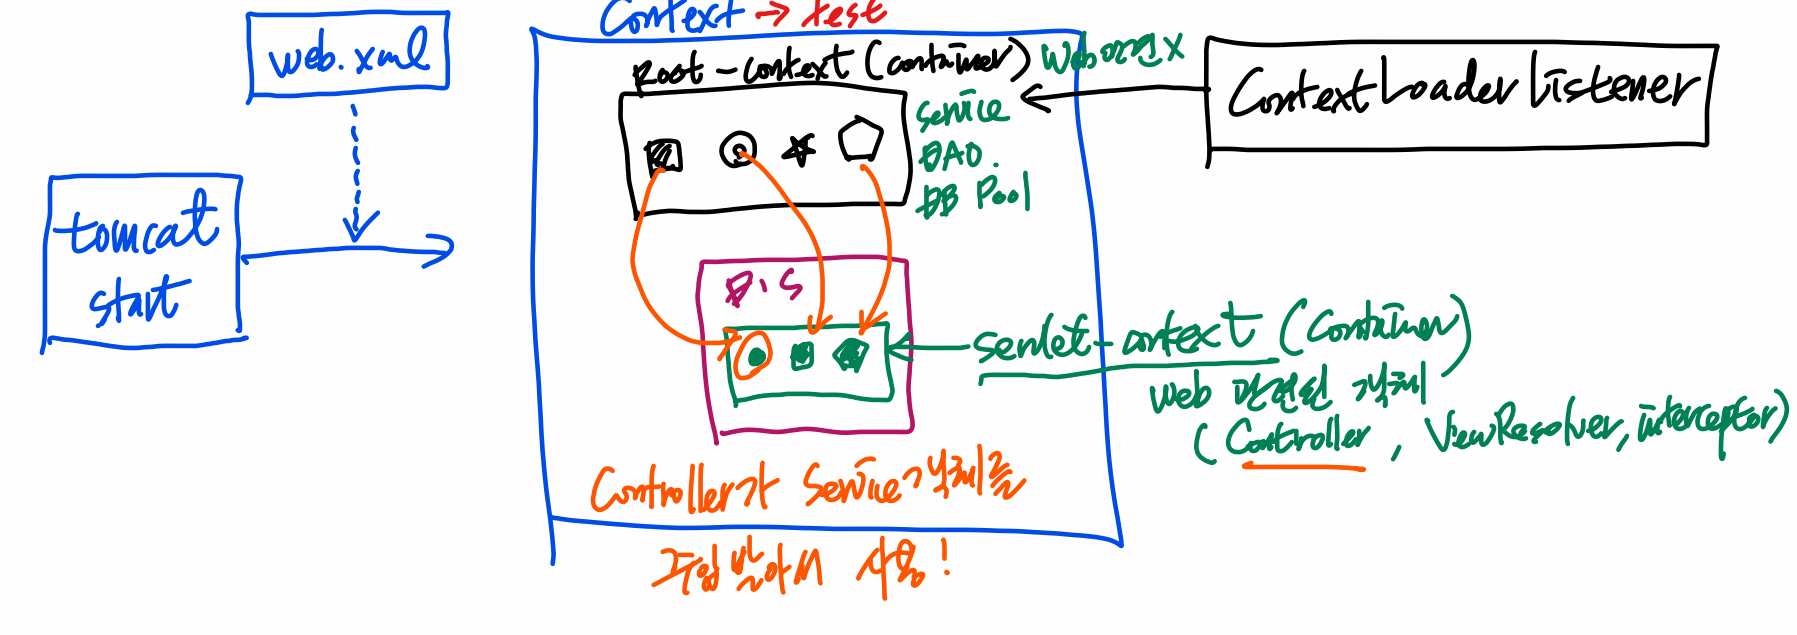 web.xml
tomcat
start
Context → test
Root-context (container)
Web 관련 X
Service
DAO.
DB Pool
ContextLoaderListener
D.S
servlet-context (Container)
Web 관련된 객체
(Controller, ViewResolver, interceptor)
Controller가 Service 객체를
주입 받아서 사용!